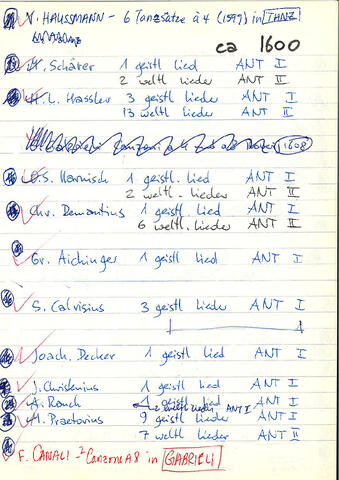 V. HAUSSMANN - 6 Tanzsätze à 4 (1599) in TANZ
ca 1600
Schärer 1 geistl Lied ANT I
2 weltl Lieder ANT II
H. L. Hassler 3 geistl Lieder ANT I
13 weltl Lieder ANT II
1608
O.S. Harnisch 1 geistl. Lied ANT I
2 weltl. Lieder ANT II
Chr. Demantius 1 geistl. Lied ANT I
6 weltl. Lieder ANT II
Gr. Aichinger 1 geistl Lied ANT I
S. Calvisius 3 geistl Lieder ANT I
Joach. Decker 1 geistl Lied ANT I
J. Christenius 1 geistl Lied ANT I
A. Rauch geistl Lied ANT I
2 Lieder ANT I
M. Praetorius 9 geistl Lieder ANT I
7 weltl Lieder ANT II
F. CANALI - 2 Canzone A8 in GABRIELI